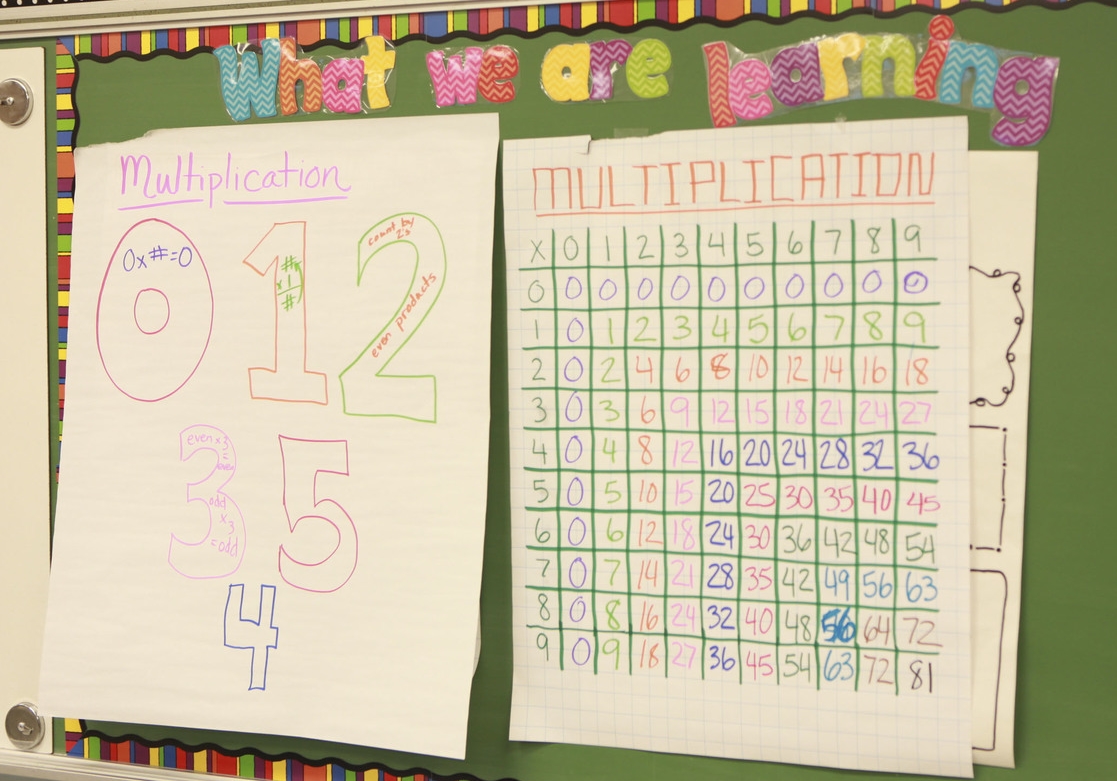 What we are learning
Multiplication
0x#=0
#
x1
#
count by
2's
even products
even x3
=
even
odd
x3
=odd
MULTIPLICATION
X 0 1 2 3 4 5 6 7 8 9
0 0 0 0 0 0 0 0 0 0 0
1 0 1 2 3 4 5 6 7 8 9
2 0 2 4 6 8 10 12 14 16 18
3 0 3 6 9 12 15 18 21 24 27
4 0 4 8 12 16 20 24 28 32 36
5 0 5 10 15 20 25 30 35 40 45
6 0 6 12 18 24 30 36 42 48 54
7 0 7 14 21 28 35 42 49 56 63
8 0 8 16 24 32 40 48 56 64 72
9 0 9 18 27 36 45 54 63 72 81
0 1 2
3 5
4